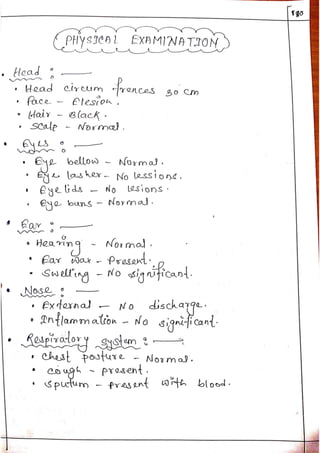 180
PHYSICAL EXAMINATION
Head :
Head circumfrences 30 cm
face - Elesion.
Hair - Black.
scalp - Normal.
Eyes :
Eye bellow - Normal.
Eye lasher - No lessions.
Eye lids - No lesions.
Eye buns - Normal.
Ear :
Hearing - Normal.
Ear wax - Present.
Swelling - No significant.
Nose :
External - No discharge.
Inflammation - No significant.
Respiratory system :
chest posture - Normal.
cough - present.
sputum - present with blood.